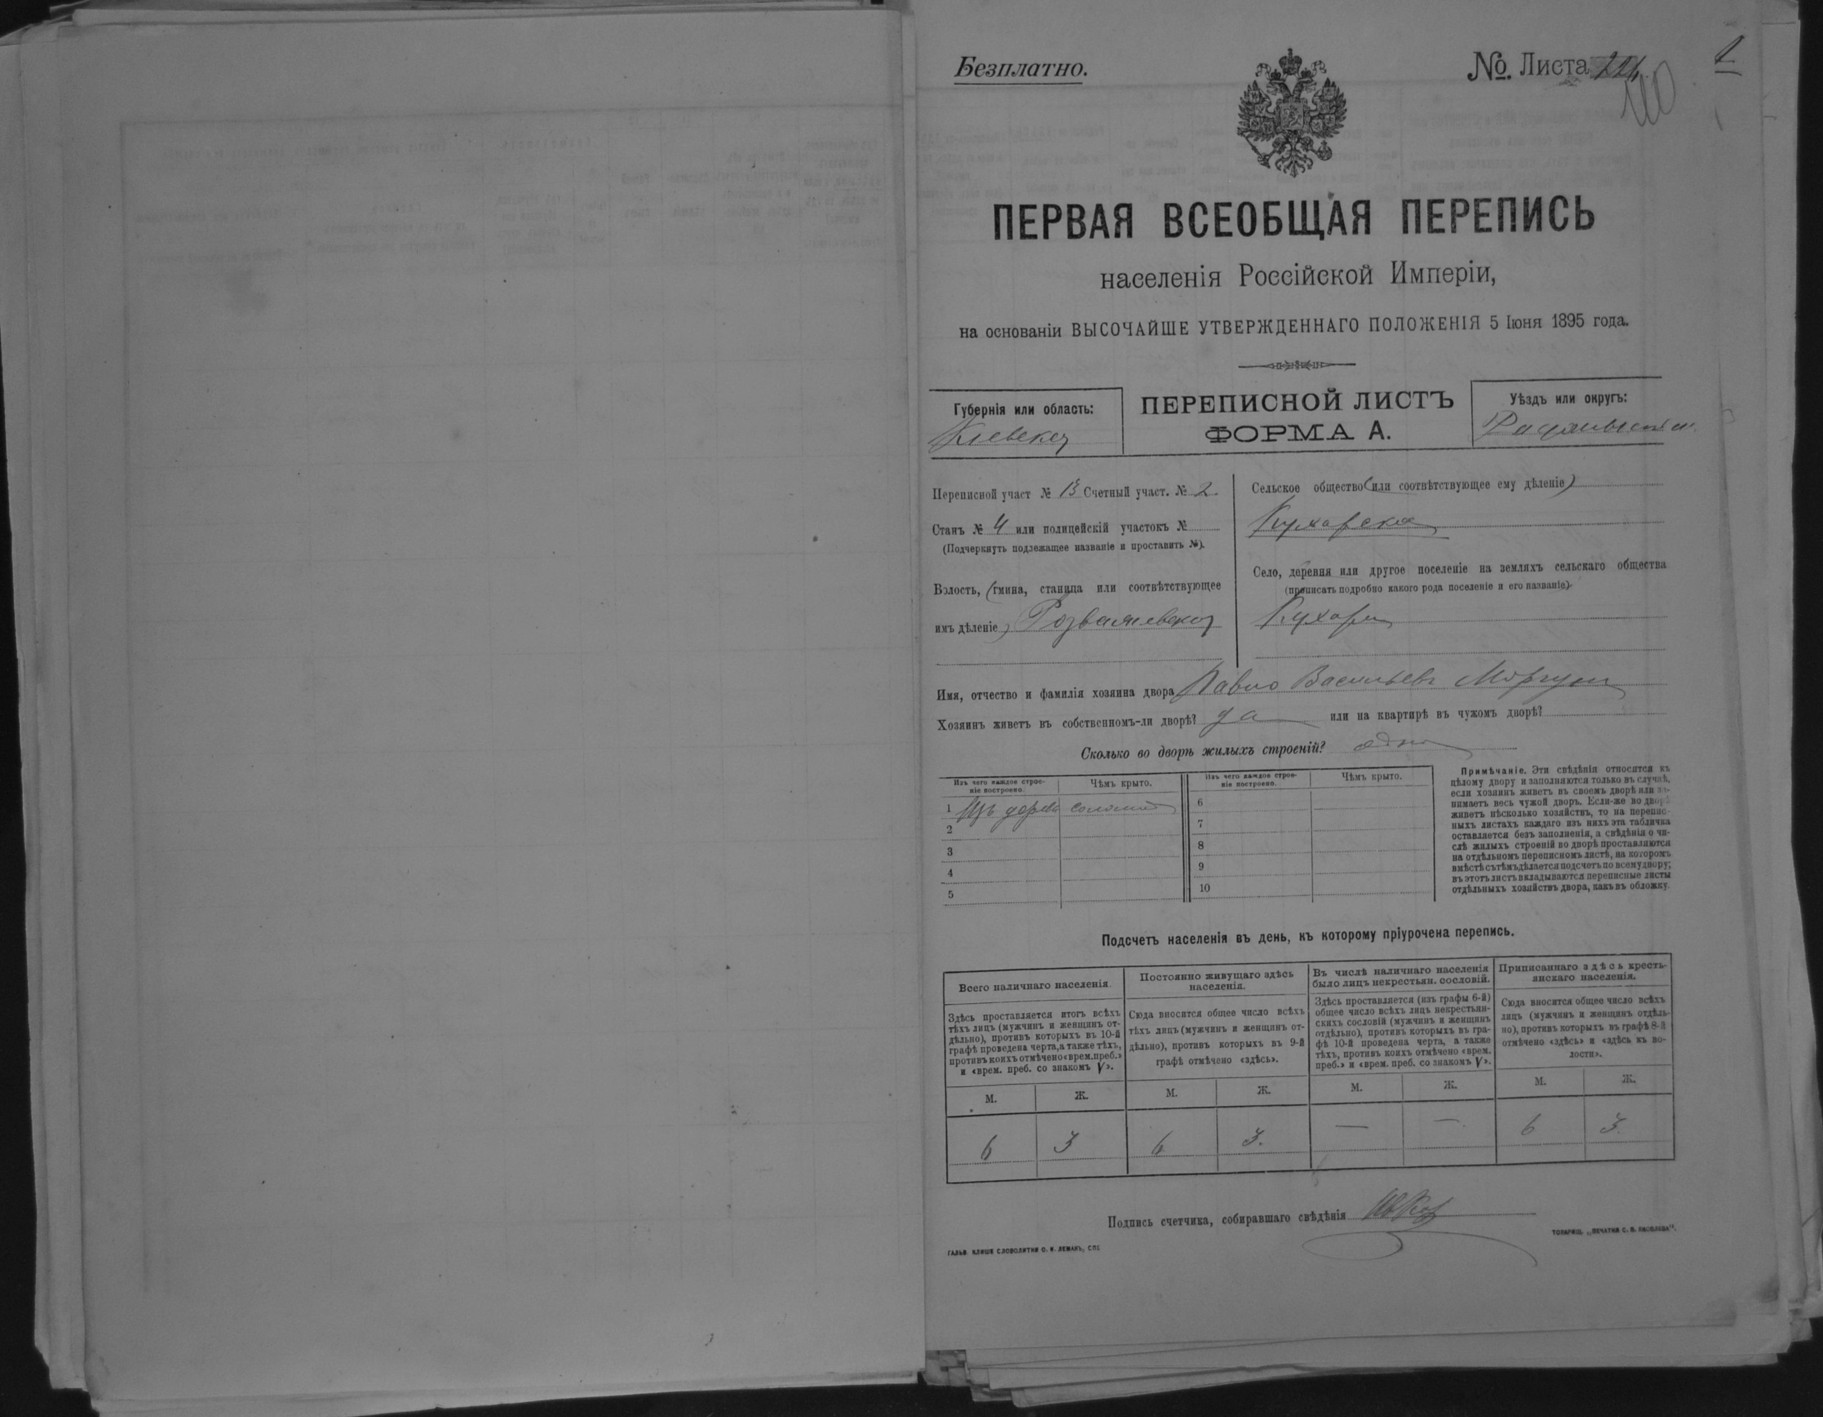 Безплатно.
№ Листа
ПЕРВАЯ ВСЕОБЩАЯ ПЕРЕПИСЬ
населенія Россійской Имперіи,
на основаніи ВЫСОЧАЙШЕ УТВЕРЖДЕННАГО ПОЛОЖЕНІЯ 5 Іюня 1895 года.
Губернія или область:
Кіевская
ПЕРЕПИСНОЙ ЛИСТЪ
ФОРМА А.
Уѣздъ или округъ:
Переписной участ № 13 Счетный участ. № 2
Станъ № 4 или полицейскій участокъ №
(Подчеркнуть подлежащее названіе и проставить №).
Волость, (гмина, станица или соотвѣтствующее
имъ дѣленіе)
Сельское общество (или соотвѣтствующее ему дѣленіе)
Кухарское
Село, деревня или другое поселеніе на земляхъ сельскаго общества
(прописать подробно какого рода поселеніе и его названіе)
Кухари
Имя, отчество и фамилія хозяина двора Павло Васильевъ Моргун
Хозяинъ живетъ въ собственномъ-ли дворѣ? да или на квартирѣ въ чужомъ дворѣ?
Сколько во дворѣ жилыхъ строеній? одно
Изъ чего каждое строеніе построено. Чѣмъ крыто.
1 Изъ дерева соломой
2
3
4
5
Изъ чего каждое строеніе построено. Чѣмъ крыто.
6
7
8
9
10
Примѣчаніе. Эти свѣдѣнія относятся къ
цѣлому двору и заполняются только въ случаѣ,
если хозяинъ живетъ въ своемъ дворѣ или за-
нимаетъ весь чужой дворъ. Если-же во дворѣ
живетъ нѣсколько хозяйствъ, то на перепис-
ныхъ листахъ каждаго изъ нихъ эта табличка
оставляется безъ заполненія, а свѣдѣнія о чи-
слѣ жилыхъ строеній во дворѣ проставляются
на отдѣльномъ переписномъ листѣ, на которомъ
вмѣстѣ съ тѣмъ дѣлается подсчетъ по всему двору;
въ этотъ листъ вкладываются переписные листы
отдѣльныхъ хозяйствъ двора, какъ въ обложку.
Подсчетъ населенія въ день, къ которому пріурочена перепись.
Всего наличнаго населенія.
Здѣсь проставляется итогъ всѣхъ
тѣхъ лицъ (мужчинъ и женщинъ от-
дѣльно), противъ которыхъ въ 10-й
графѣ проведена черта, а также тѣхъ,
противъ коихъ отмѣчено «врем. преб.»
и «врем. преб. со знакомъ V».
М. Ж.
6 3
Постоянно живущаго здѣсь
населенія.
Сюда вносится общее число всѣхъ
тѣхъ лицъ (мужчинъ и женщинъ от-
дѣльно), противъ которыхъ въ 9-й
графѣ отмѣчено «здѣсь».
М. Ж.
6 3.
Въ числѣ наличнаго населенія
было лицъ некрестьян. сословій.
Здѣсь проставляется (изъ графы 6-й)
общее число всѣхъ лицъ некрестьян-
скихъ сословій (мужчинъ и женщинъ
отдѣльно), противъ которыхъ въ гра-
фѣ 10-й проведена черта, а также
тѣхъ, противъ коихъ отмѣчено «врем.
преб.» и «врем. преб. со знакомъ V».
М. Ж.
— —
Приписаннаго здѣсь кресть-
янскаго населенія.
Сюда вносится общее число всѣхъ
лицъ (мужчинъ и женщинъ отдѣль-
но), противъ которыхъ въ графѣ 8-й
отмѣчено «здѣсь» и «здѣсь къ во-
лости».
М. Ж.
6 3.
Подпись счетчика, собиравшаго свѣдѣнія
ГАЛЬВ. КЛИШЕ СЛОВОЛИТНИ О. И. ЛЕМАНЪ, СПБ
ТОВАРИЩ. „ПЕЧАТНЯ С. П. ЯКОВЛЕВА“.